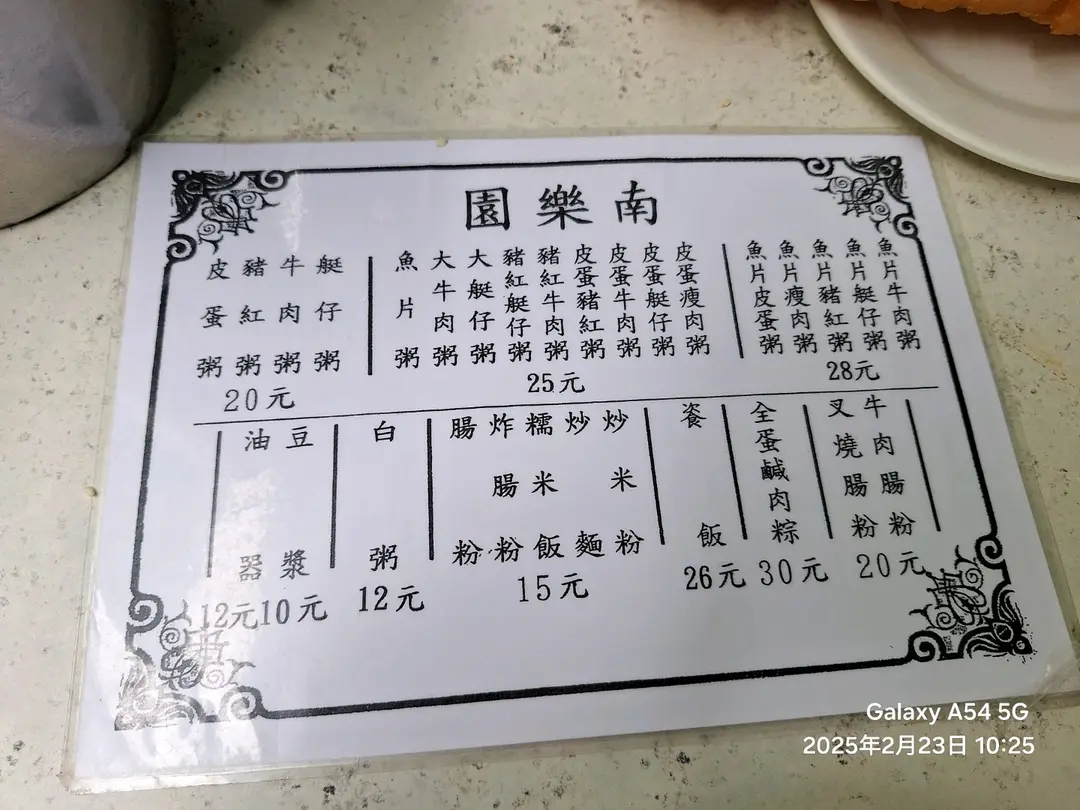 南樂園
魚片牛肉粥
魚片艇仔粥
魚片豬紅粥
魚片瘦肉粥
魚片皮蛋粥
28元
皮蛋瘦肉粥
皮蛋艇仔粥
皮蛋牛肉粥
皮蛋豬紅粥
豬紅牛肉粥
豬紅艇仔粥
大艇仔粥
大牛肉粥
魚片粥
25元
艇仔粥
牛肉粥
豬紅粥
皮蛋粥
20元
牛肉腸粉
叉燒腸粉
20元
全蛋鹹肉粽
30元
餈飯
26元
炒米粉
炒麵
糯米飯
炸腸粉
腸粉
15元
白粥
12元
豆漿
10元
油器
12元
Galaxy A54 5G
2025年2月23日 10:25